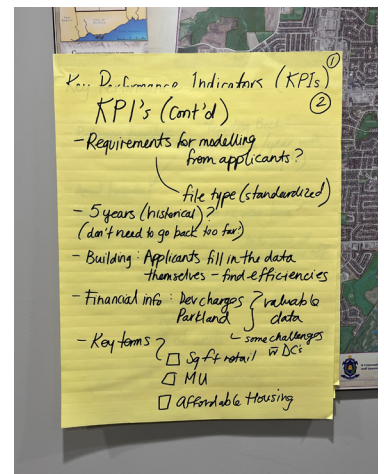 Key Performance Indicators (KPIs) ①
KPI's (Cont'd) ②
- Requirements for modelling
from applicants?
file type (standardized)
- 5 years (historical)?
(don't need to go back too far?)
- Building: Applicants fill in the data
themselves - find efficiencies
- Financial info: Dev charges } valuable
Parkland } data
- some challenges
w DC's
- Key terms
□ Sq ft retail
□ MU
□ Affordable Housing